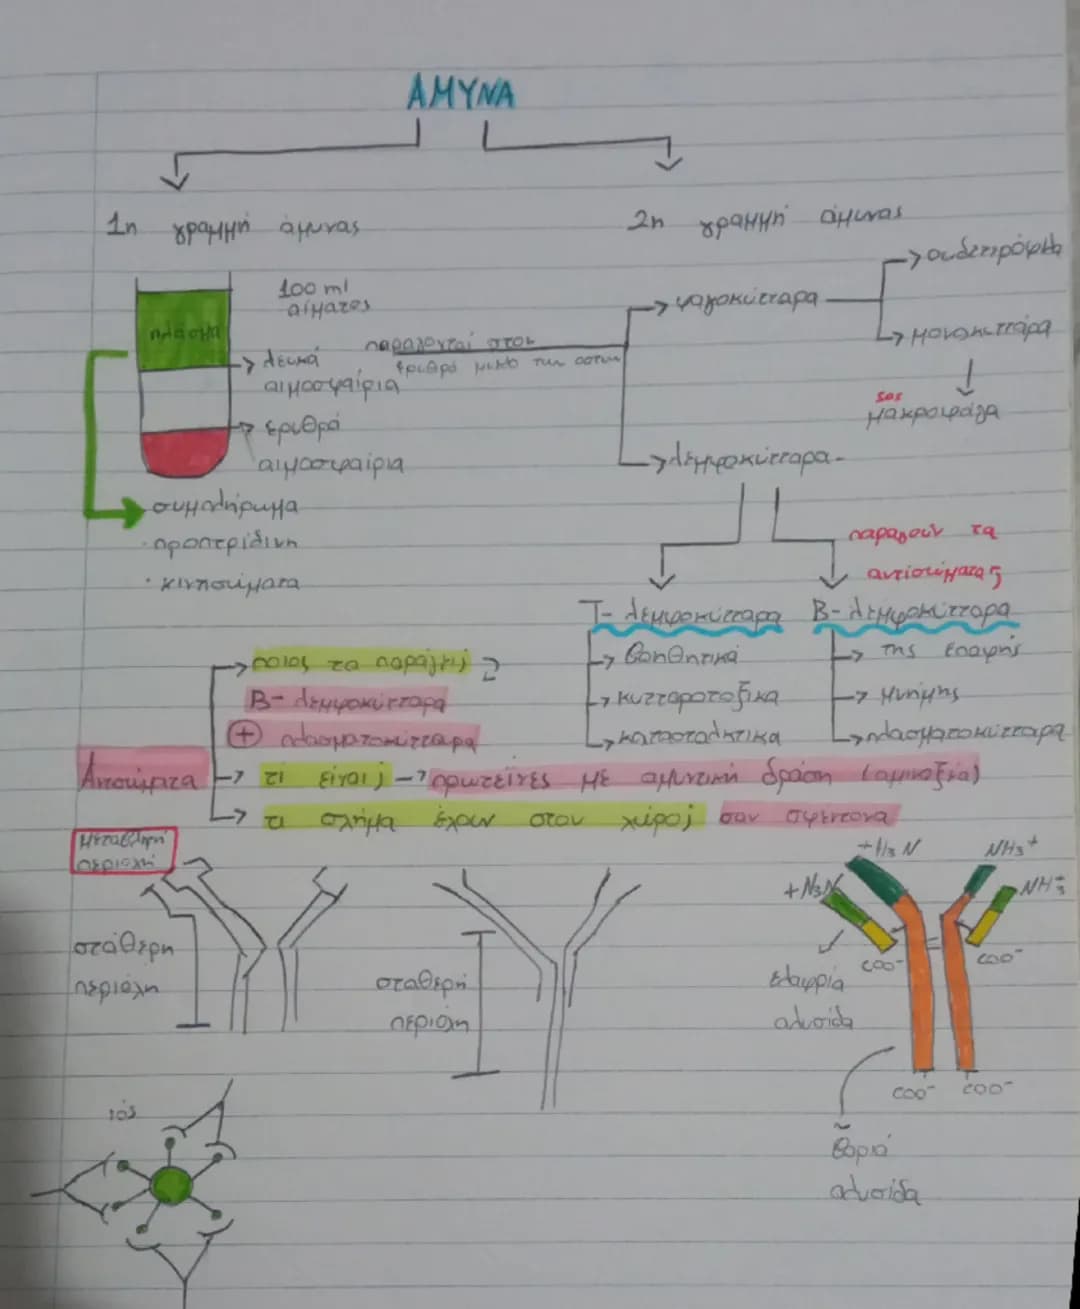 ΑΜΥΝΑ
1η γραμμή άμυνας
2η γραμμή άμυνας
100 ml
αίματος
πλάσμα
λευκά
αιμοσφαίρια
ερυθρά
αιμοσφαίρια
συμπλήρωμα
· προπερίδινη
·
παράγονται στον
ερυθρό μυελό των οστών
φαγοκύτταρα
ουδετερόφιλα
μονοκύτταρα
sos
μακροφάγα
λεμφοκύτταρα
παράγουν τα
αντισώματα
Τ- λεμφοκύτταρα
Β- λεμφοκύτταρα
βοηθητικά
της επαφής
κυτταροτοξικα
μνήμης
κατασταλτικα
πλασματοκύτταρα
Αντισώματα
ποιος τα παράγει;
Β- λεμφοκύτταρα
+ πλασματοκύτταρα
τί είναι; πρωτεΐνες με αμυντική δράση (αμινοξέα)
τι σχήμα έχουν στον χώρο; σαν σφεντονα
Μεταβλητή
περιοχή
στάθερη
περιόχη
σταθερή
περιοχη
+H3 N
NH3+
+N3N
NH3+
COO-
COO-
ελαφριά
αλυσίδα
COO-
COO-
βαριά
αλυσίδα
ιός